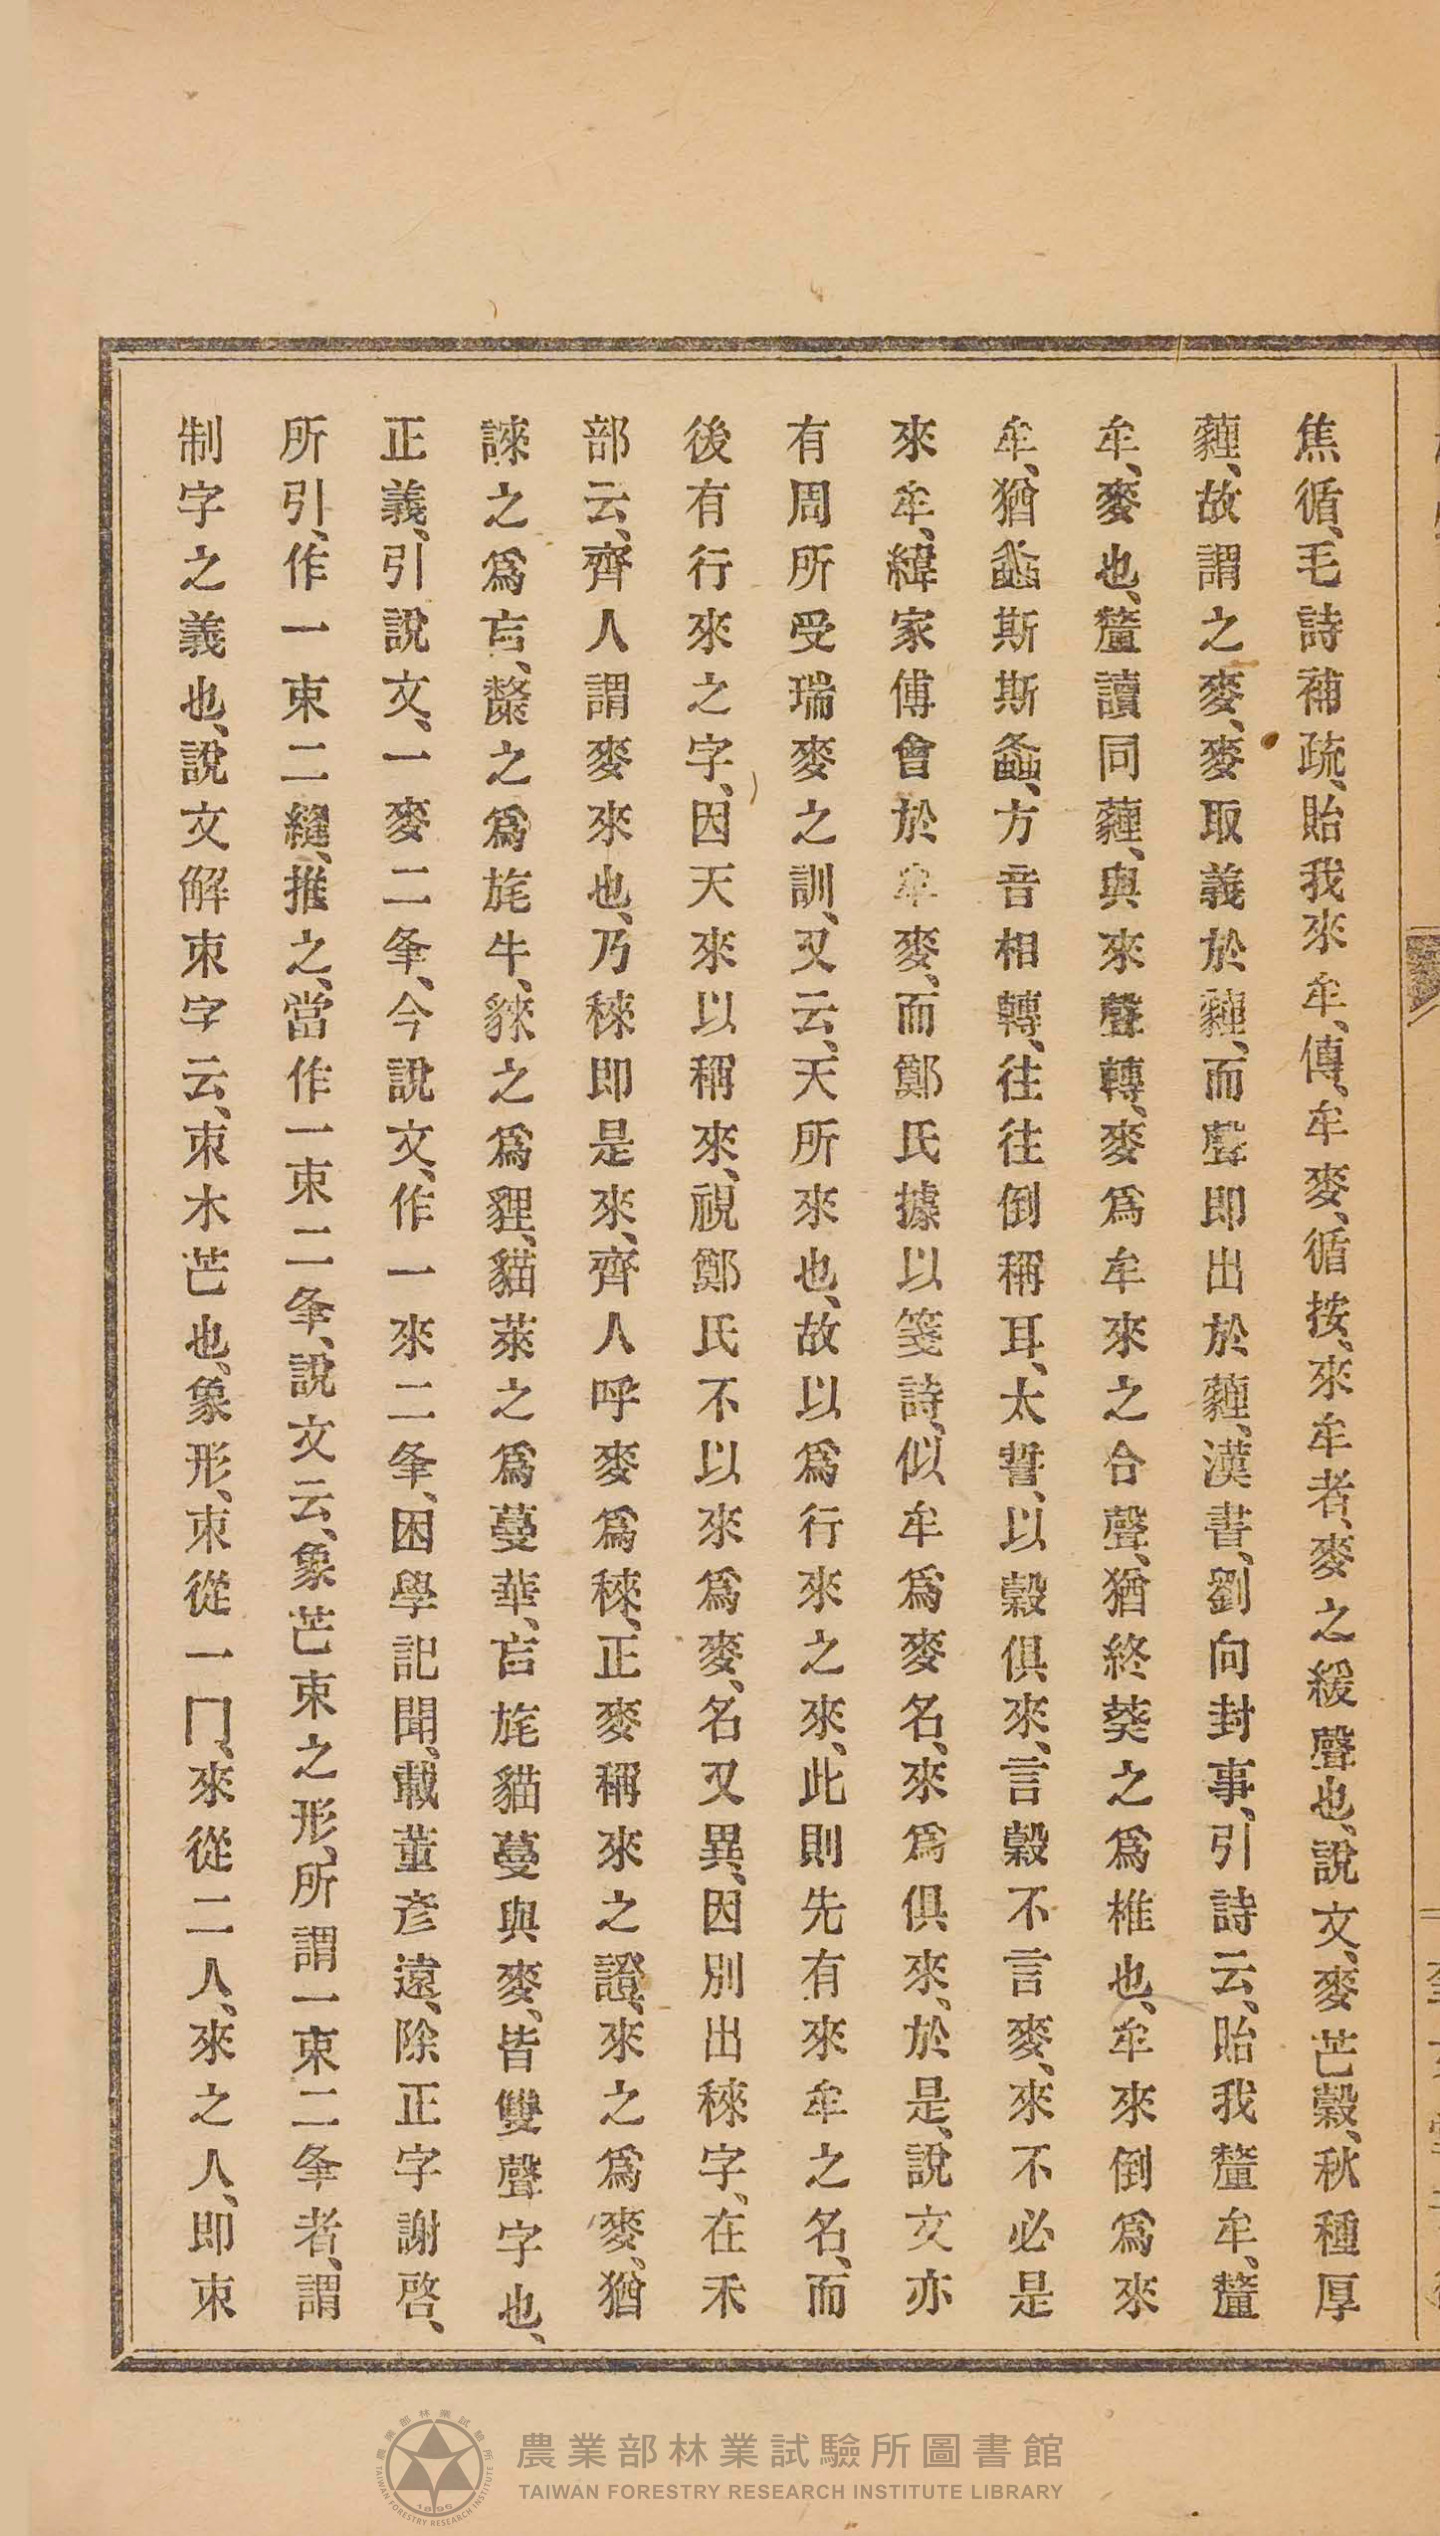 焦循、毛詩補疏、貽我來牟、傳、牟麥、循按、來牟者、麥之緩聲也、說文、麥芒穀、秋種厚
薶、故謂之麥、麥取義於薶、而聲即出於薶、漢書、劉向封事、引詩云、貽我釐牟、釐
牟、麥也、釐讀同薶、與來聲轉、麥為牟來之合聲、猶終葵之為椎也、牟來倒為來
牟、猶螽斯斯螽、方音相轉、往往倒稱耳、太誓、以穀俱來、言穀不言麥、來不必是
來牟、緯家傅會於牟麥、而鄭氏據以箋詩、似牟為麥名、來為俱來、於是、說文亦
有周所受瑞麥之訓、又云、天所來也、故以為行來之來、此則先有來牟之名、而
後有行來之字、因天來以稱來、視鄭氏不以來為麥、名又異、因別出䅘字、在禾
部云、齊人謂麥來也、乃䅘即是來、齊人呼麥為䅘、正麥稱來之證、來之為麥、猶
誺之為䚷、氂之為旄牛、䅘之為貍、貓萊之為蔓華、䚷旄貓蔓與麥、皆雙聲字也、
正義、引說文、一麥二夆、今說文、作一來二夆、困學記聞、載董彥遠、除正字謝啓、
所引、作一束二縫、推之、當作一朿二夆、說文云、象芒朿之形、所謂一朿二夆者、謂
制字之義也、說文解朿字云、朿木芒也、象形、朿從一冂、來從二人、來之人、即朿
農業部林業試驗所圖書館
TAIWAN FORESTRY RESEARCH INSTITUTE LIBRARY